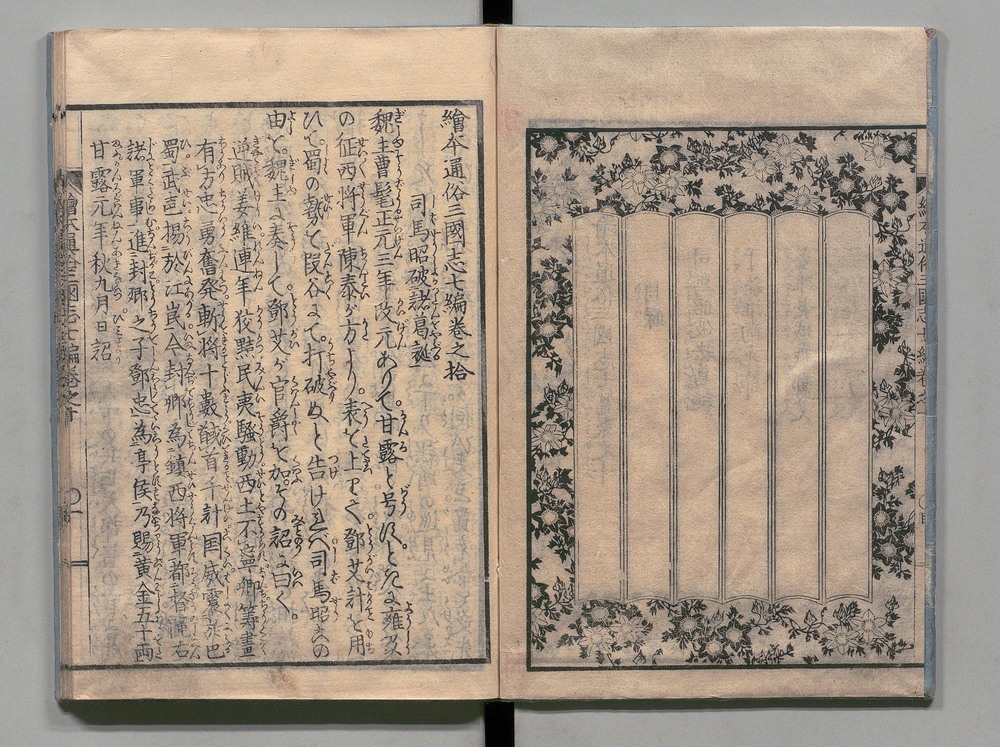 繪本通俗三國志七編卷之拾
司馬昭破諸葛誕
魏主曹髦正元三年改元ありて甘露と号に雍州
の征西将軍陳泰が方より表を上りて鄧艾計を用
ひて蜀の勢を段谷にて打破ぬと告けれバ司馬昭この
由を魏主に奏して鄧艾が官爵を加その詔に曰く
逆賊姜維連年狡黠民夷騒動西土不寧卿筹畫
有方忠勇奮発斬将十數馘首千計国威震於巴
蜀武声揚於江岷今封卿為鎮西将軍都督隴右
諸軍事進封鄉之子鄧忠為亭侯乃賜黄金五十両
甘露元年秋九月日詔
繪本通俗三國志七編卷之十